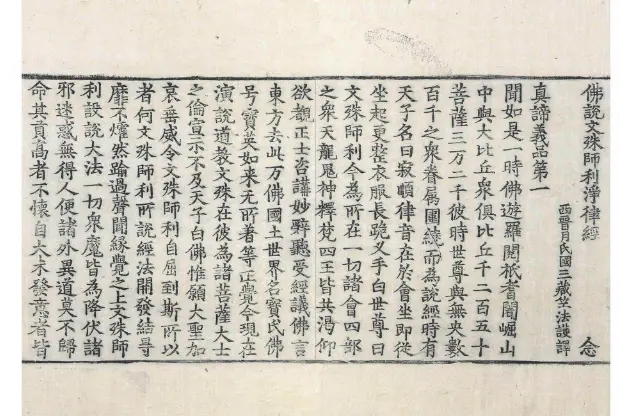 佛說文殊師利淨律經 念
西晉月氏國三藏竺法護譯
真諦義品第一
聞如是一時佛遊羅閱祇耆闍崛山
中與大比丘眾俱比丘千二百五十
菩薩三万二千彼時世尊與無央數
百千之眾眷屬圍繞而為說經時有
天子名曰寂順律音在於會坐即從
坐起更整衣服長跪叉手白世尊曰
文殊師利今為所在一切諸會四部
之眾天龍鬼神釋梵四王皆共渴仰
欲覩正士咨講妙辭聽受經議佛言
東方去此万佛國土世界名寶氏佛
号寶英如來无所著等正覺今現在
演說道教文殊在彼為諸菩薩大士
之倫宣示不及天子白佛惟願大聖加
哀垂威令文殊師利自屈到斯所以
者何文殊師利所說經法開發結㝵
靡不燿然踰過聲聞緣覺之上文殊師
利設說大法一切眾魔皆為降伏諸
邪迷惑無得人便諸外異道莫不歸
命其貢高者不懷自大未發意者皆